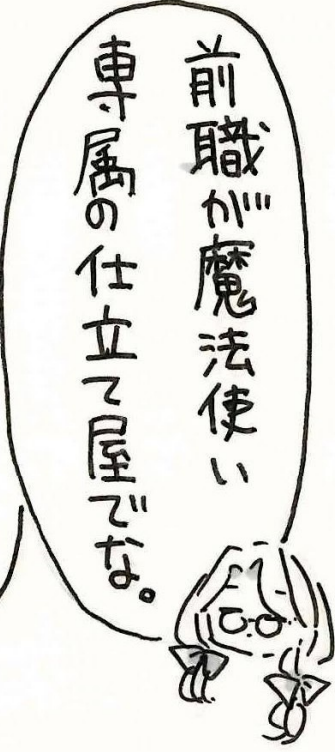 前職が魔法使い
専属の仕立て屋でな。